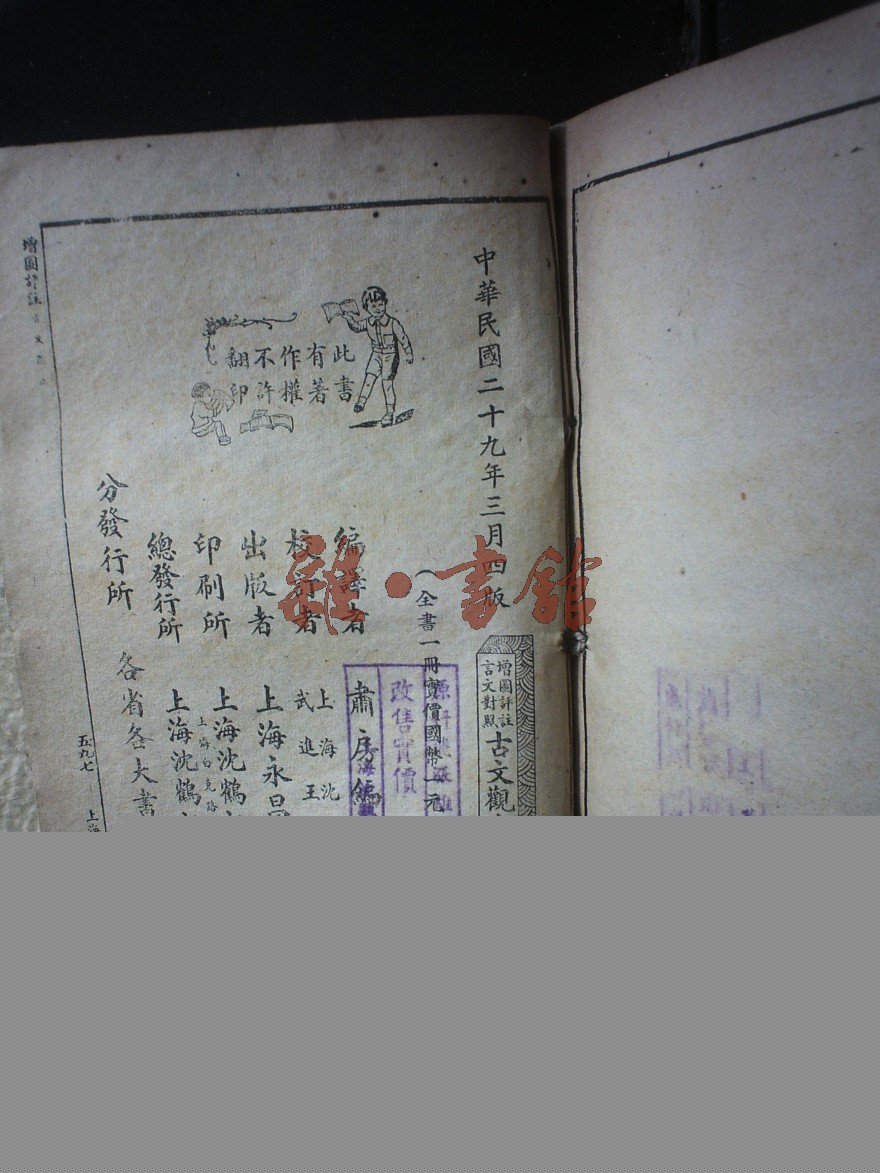 中華民國二十九年三月四版
此書
有著
作權
不許
翻印
增圖評註
言文對照
古文觀
(全書一冊實價國幣一元
編譯者
肅房編
校訂者
上海沈
武進王
出版者
上海永昌
印刷所
上海沈鶴
上海白克路
總發行所
上海沈鶴
分發行所
各省各大書
改售實價
增圖評註
五九七
上海
雜·書館